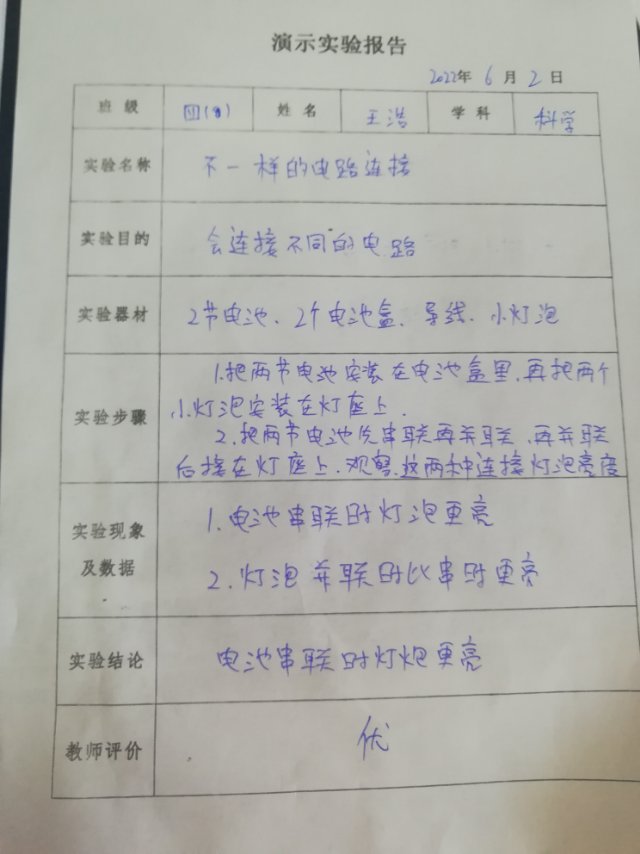 演示实验报告
2022年 6 月 2 日
班 级 四(1) 姓 名 王浩 学 科 科学
实验名称 不一样的电路连接
实验目的 会连接不同的电路
实验器材 2节电池、2个电池盒、导线、小灯泡
实验步骤
1.把两节电池安装在电池盒里,再把两个
小灯泡安装在灯座上.
2.把两节电池先串联再并联,再并联
后接在灯座上.观察.这两种连接灯泡亮度
实验现象
及数据
1.电池串联时灯泡更亮
2.灯泡并联时比串时更亮
实验结论 电池串联时灯炮更亮
教师评价 优